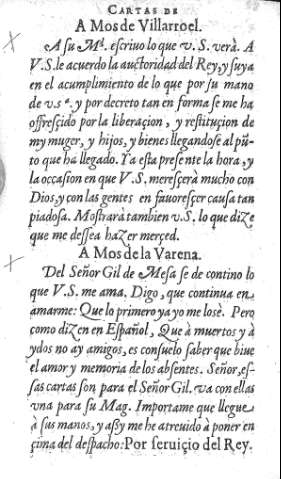 CARTAS DE
A Mos de Villarroel.
A su M.d escriuo lo que v. S. verà. A
V.S. le acuerdo la auctoridad del Rey, y suya
en el acumplimiento de lo que por su mano
de v.s a. y por decreto tan en forma se me ha
offrescido por la liberaçion, y restituçion de
my muger, y hijos, y bienes llegandose al pũ-
to que ha llegado. Ya esta presente la hora, y
la occasion en que V. S. meresçerà mucho con
Dios, y con las gentes en fauoresçer causa tan
piadosa. Mostrarà tambien v.S. lo que dize
que me dessea hazer merçed.
A Mos de la Varena.
Del Señor Gil de Mesa se de contino lo
que V.S. me ama. Digo, que continua en
amarme: Que lo primero ya yo me losè. Pero
como dizen en Español, Que à muertos y à
ydos no ay amigos, es consuelo saber que biue
el amor y memoria de los absentes. Señor, es-
sas cartas son para el Señor Gil. va con ellas
vna para su Mag. Importame que llegue
à sus manos, y assy me he atreuido à poner en
çima del despacho: Por seruiçio del Rey.